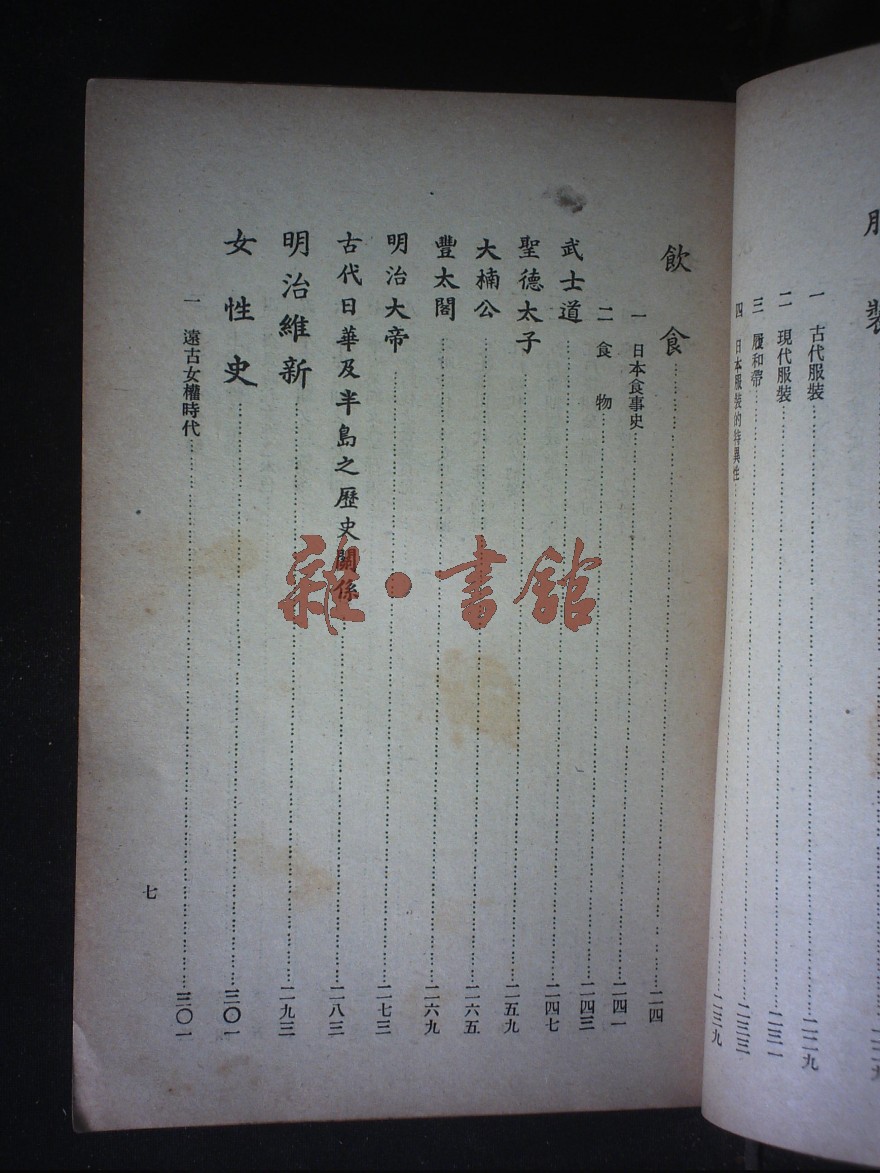 服裝……二二九
一 古代服裝……二二九
二 現代服裝……二三一
三 履和帶……二三三
四 日本服裝的特異性……二三九
飲食……二四
一 日本食事史……二四一
二 食物……二四三
武士道……二四七
聖德太子……二五九
大楠公……二六五
豐太閤……二六九
明治大帝……二七三
古代日華及半島之歷史關係……二八三
明治維新……二九三
女性史……三〇一
一 遠古女權時代……三〇一
七
雜·書館